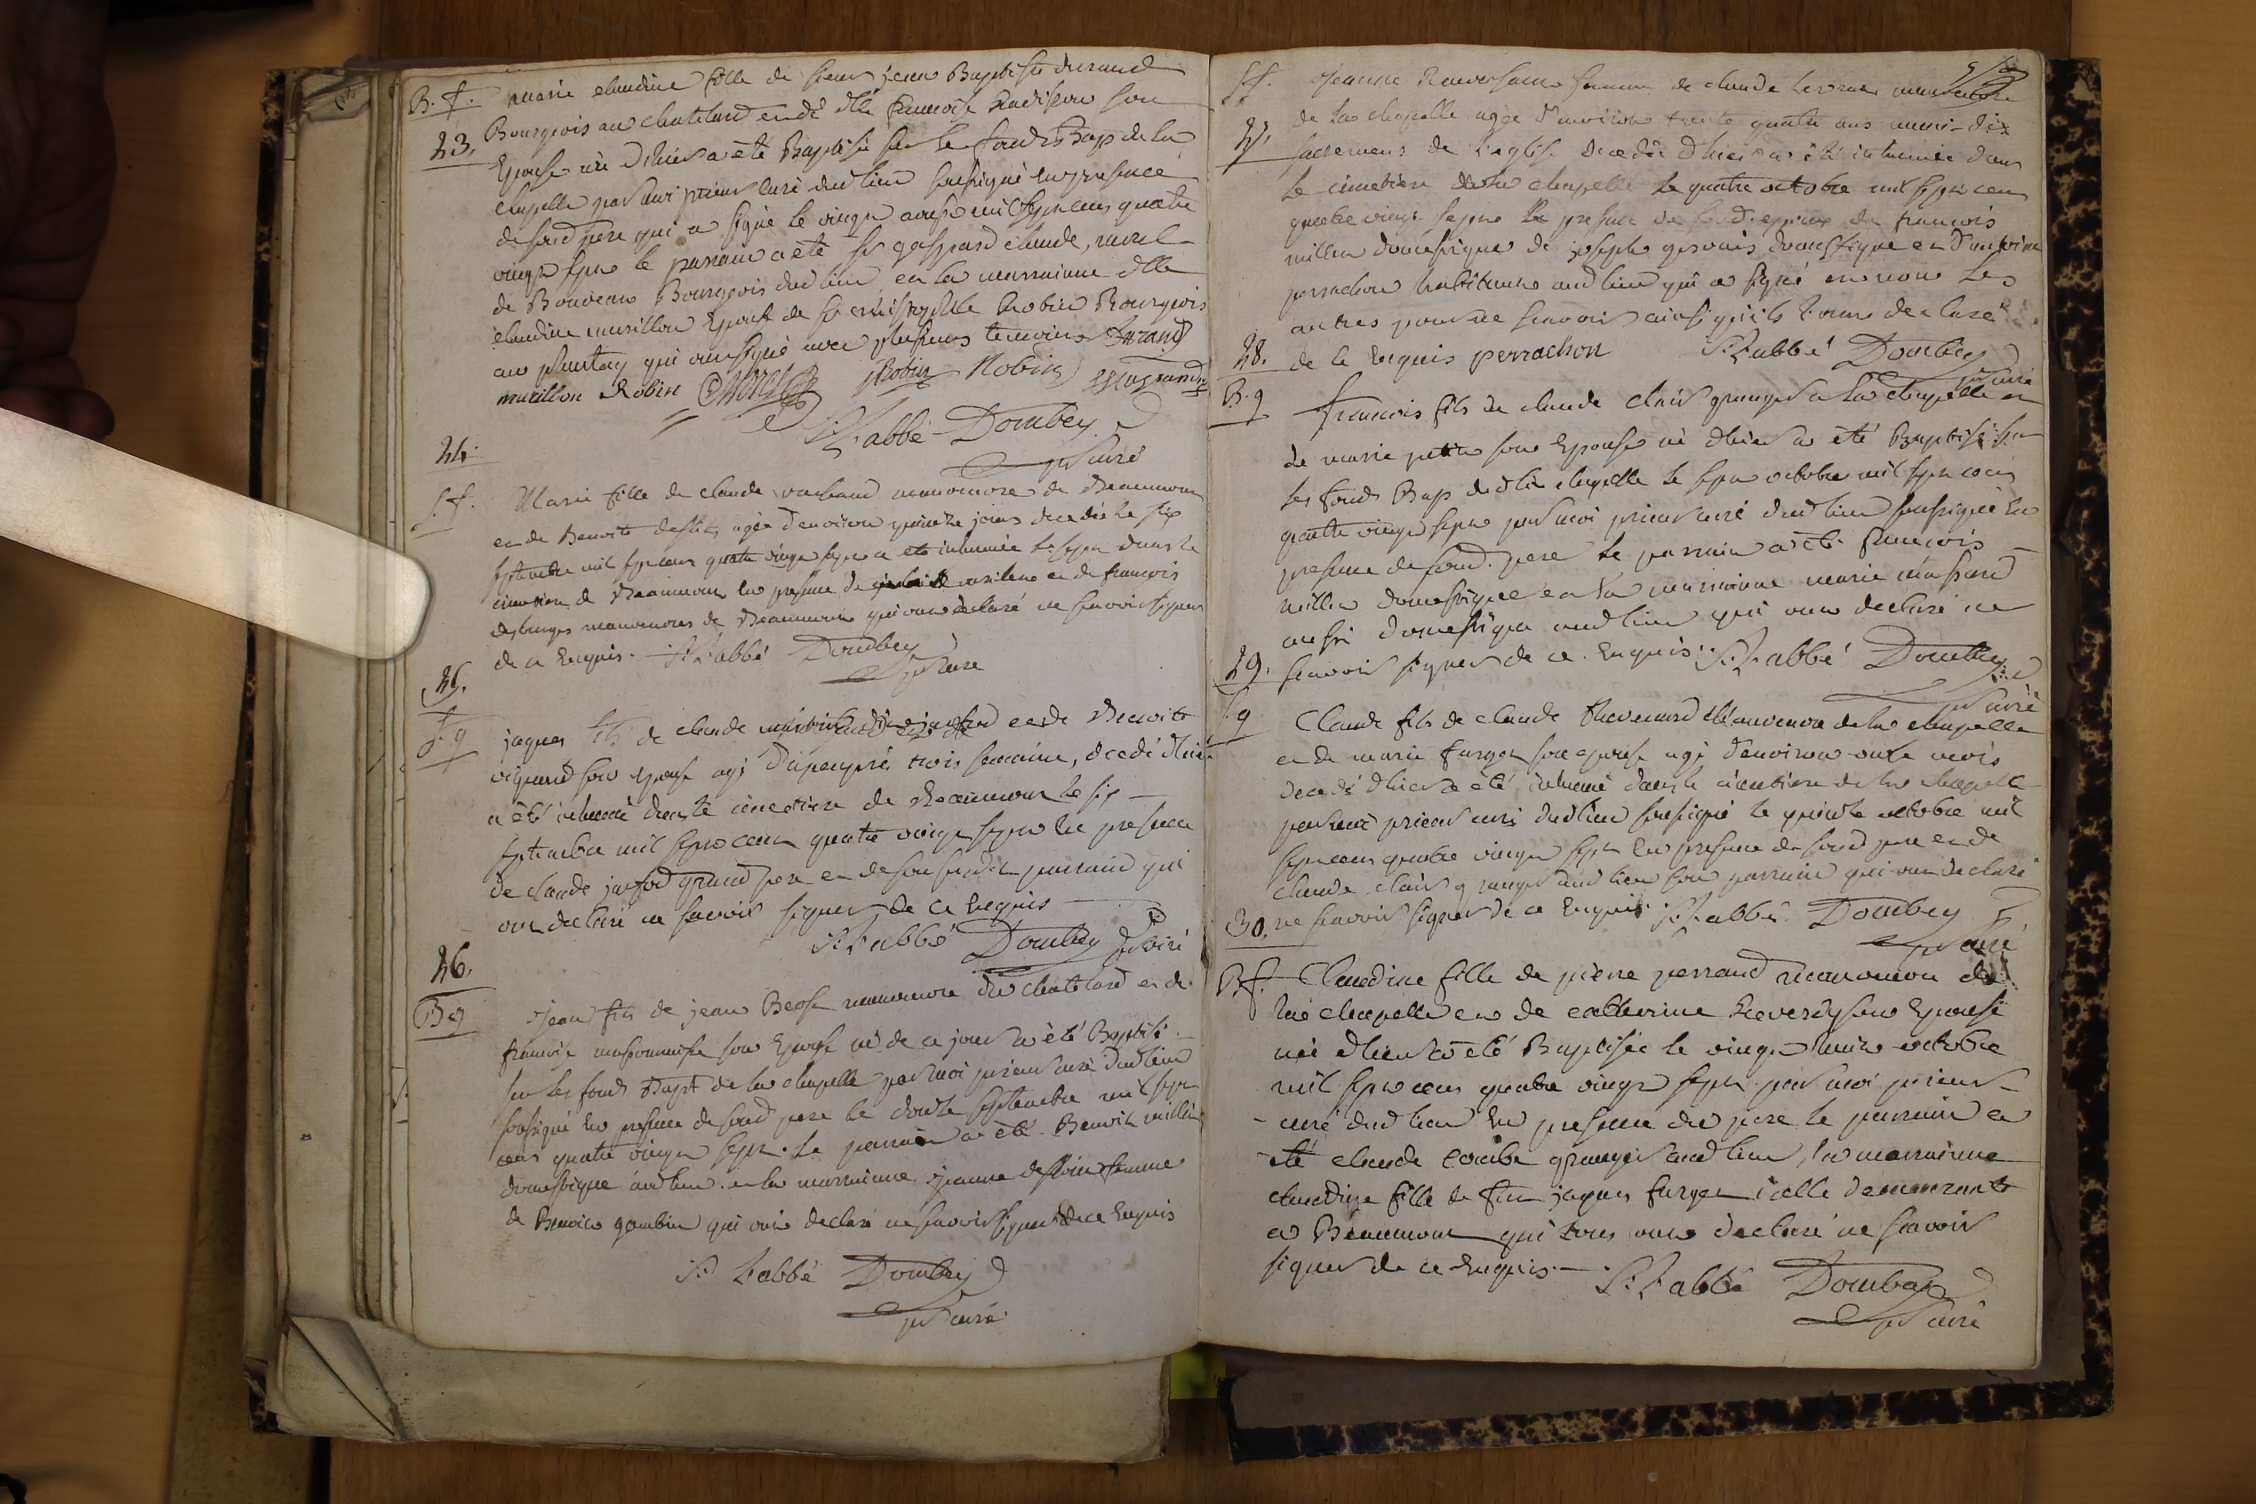 B. f. marie claudine fille de sieur jean Baptiste durand
23. Bourgeois au chatelard et de dlle francoise son
Epouse née d'hier a été Baptisée sur les fonds Bap de la
chapelle par moi prieur curé dud lieu soussigné en presence
de sond pere qui a signé le vingt aoust mil sept cens quatre
vingt sept le parrain a été sr gaspard claude morel
de Bonveau Bourgeois dud lieu et la marrainne dlle
claudine murillon Epouse de sr Robin Bourgeois
au plantay qui ont signé avec plusieurs temoins Durand
murillon Robin Morel Robin Robin
S. L'abbé Dombey
pr curé
24.
S. f. Marie fille de claude manoeuvre de Beaumont
et de Benoite agée d'environ quinze jours decedée le six
septembre mil sept cens quatre vingt sept a eté inhumée le sept dans le
cimetiere de Beaumont en presence de et de francois
desbruges manoeuvres de Beaumont qui ont declaré ne scavoir signer
de ce Enquis. S. L'abbé Dombey
pr Curé
25.
S. g jaques fils de claude et de Benoite
son epouse agé d'apeuprés trois semaine, decedé d'hier
a été inhumé dans le cimetiere de Beaumont le six
septembre mil sept cens quatre vingt sept en presence
de claude grand pere et de son susdit parrain qui
ont declaré ne scavoir signer de ce Enquis
S. L'abbé Dombey pr Curé
26.
B g Jean fils de jean manoeuvre du chatelard et de
francoise son Epouse né de ce jour a été Baptisé
sur les fonds Bapt de la chapelle par moi prieur curé dud lieu
soussigné en presence de sond pere le douze septembre mil sept
cens quatre vingt sept. Le parrain a été Benoit millet
domestique aud lieu et la marrainne jeanne femme
de Benoit gambin qui ont declaré ne scavoir signer de ce Enquis
S. L'abbé Dombey
pr curé
S f. Jeanne femme de claude manoeuvre
27. de La chapelle agée d'environ trente quatre ans munie des
sacremens de l'eglise decedée d'hier a été inhumée dans
le cimetiere de la chapelle le quatre octobre mil sept cens
quatre vingt sept En presence de de francois
millet domestique de joseph gervais domestique et d'antoine
perrachon habitans aud lieu qui a signé et non Les
autres pour ne scavoir ainsi qu'ils l'ont declaré
28. de ce Enquis perrachon S. L'abbé Dombey
pr curé
B. g francois fils de claude clair granger a La chapelle et
de marie petit son Epouse né d'hier a été Baptisé sur
les fonds Bap de dte chapelle le sept octobre mil sept cens
quatre vingt sept par moi prieur curé dud lieu soussigné En
presence de sond. pere le parrain a été francois
millet domestique et la marrainne marie
aussi domestique aud lieu qui ont declaré ne
29. scavoir signer de ce Enquis. S. L'abbé Dombey
pr Curé
S g Claude fils de claude thevenard Manoeuvre de la chapelle
et de marie furget son epouse agé d'environ onze mois
decedé d'hier a été inhumé dans le cimetiere de la chapelle
par moi prieur curé dud lieu soussigné le quinze octobre mil
sept cens quatre vingt sept En presence de sond pere et de
claude clair granger aud lieu son parrain qui ont declaré
30. ne scavoir signer de ce Enquis S. L'abbé Dombey
pr curé
B. f. Claudine fille de pierre perraud manoeuvre de
La chapelle et de catherine Reverdy son Epouse
née d'hier a été Baptisée le vingt huit octobre
mil sept cens quatre vingt sept par moi prieur
curé dud lieu En presence du pere le parrain a
été claude granger aud lieu, la marrainne
claudine fille de feu jaques furget icelle demeurante
a Beaumont qui tous ont declaré ne scavoir
signer de ce Enquis. S. L'abbé Dombey
pr curé